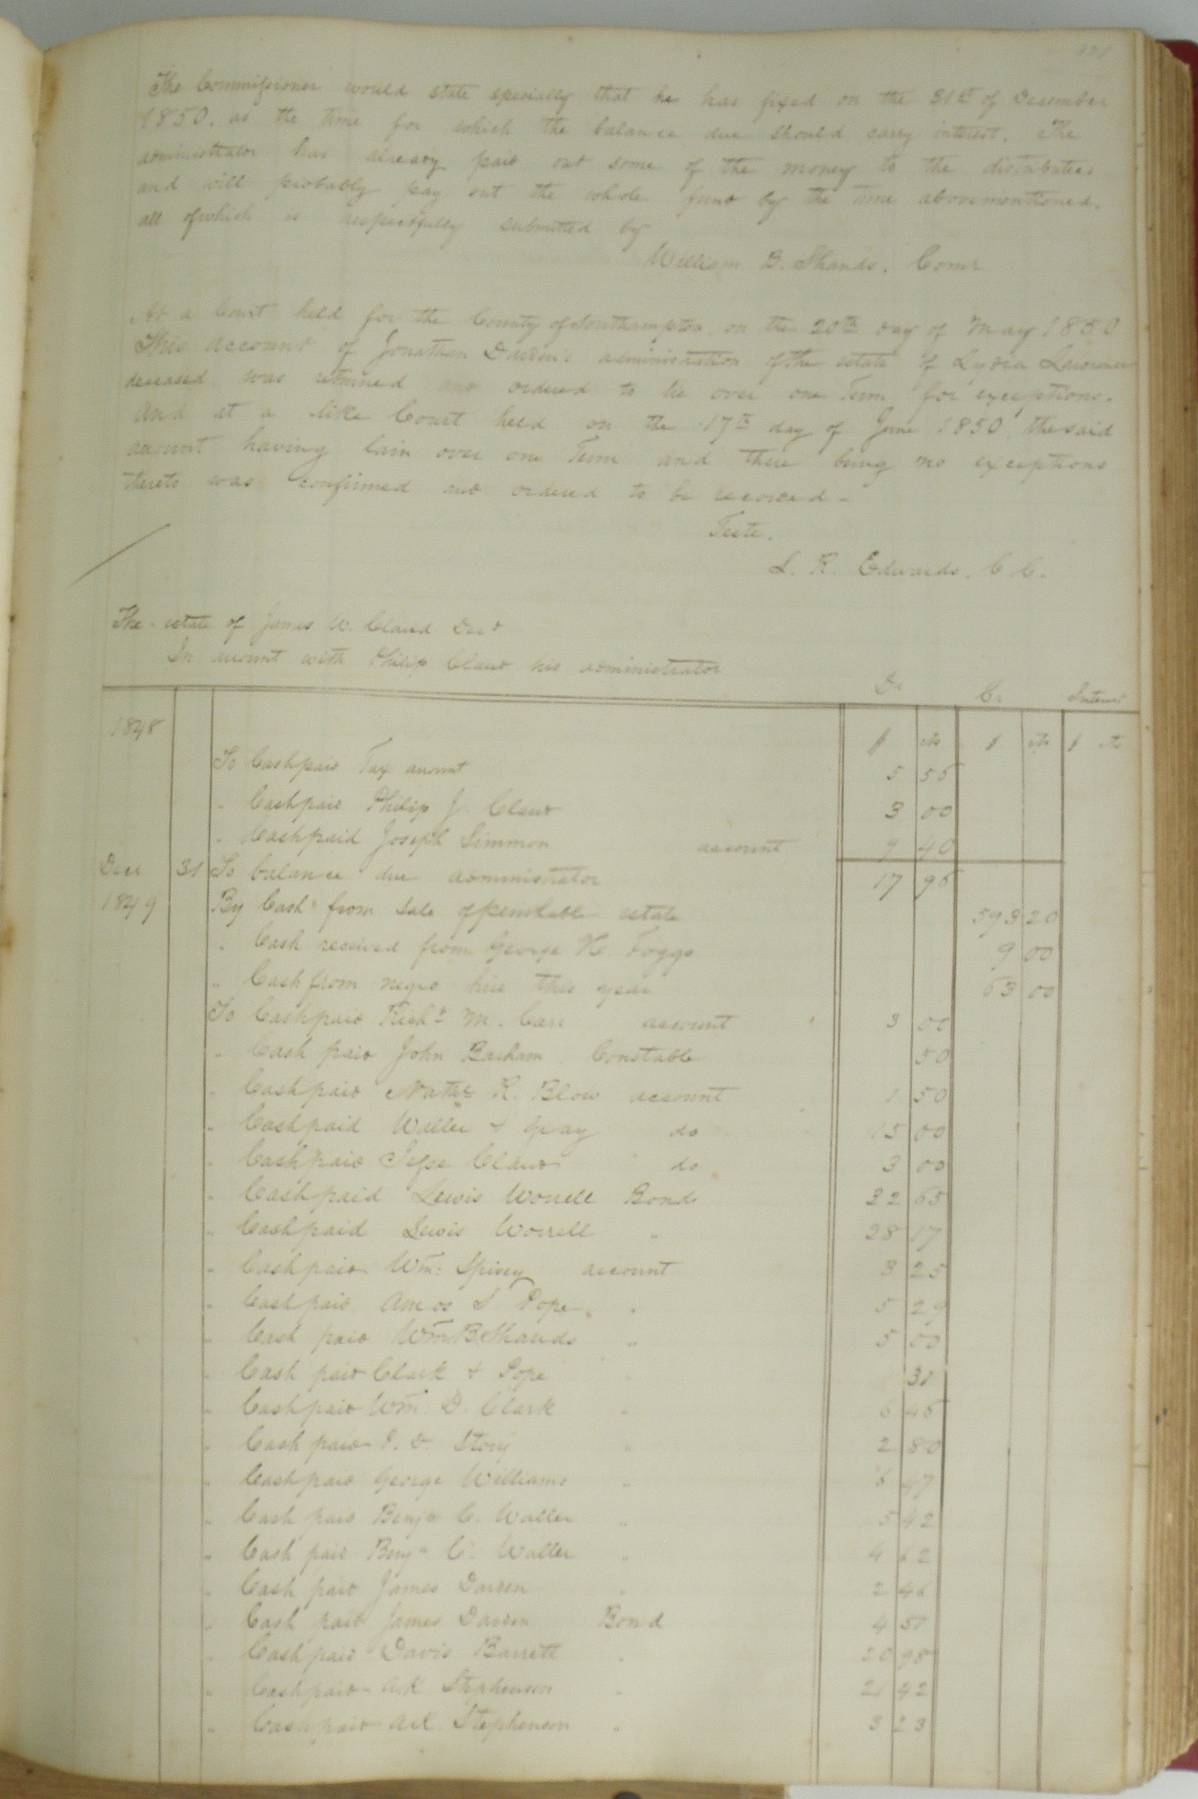 The Commissioner would state specially that he has fixed on the 31st of December
1850. as the time for which the balance due should carry interest. The
administrator has already paid out some of the money to the distributees
and will probably pay out the whole fund by the time abovementioned.
all of which is respectfully submitted by
William B. Shands. Comr
At a Court held for the County of Southampton on the 20th day of May 1850
This account of Jonathan Darden's administration of the estate of Lydia Lawrence
deceased was returned and ordered to lie over one Term for exceptions.
And at a like Court held on the 17th day of June 1850 the said
account having lain over one Term and there being no exceptions
thereto was confirmed and ordered to be recorded -
Teste.
L. R. Edwards. C. C.
The estate of James W. Claud Decd
In account with Philip Claud his administrator
Dr Cr Interest
1848 $ cts $ cts $ cts
To Cash paid Tax amount 5 55
" Cash paid Philip J. Claud 3 00
" Cash paid Joseph Simmon account 9 40
Decr 31 To balance due administrator 17 95
1849 By Cash from sale of perishable estate 593 20
" Cash received from George H. Foggs 9 00
" Cash from negro hire this year 63 00
To Cash paid Richd M. Carr account 3 00
" Cash paid John Barham Constable 50
" Cash paid Nathl R. Blow account 1 50
" Cash paid Waller & Gray do 15 00
" Cash paid Jesse Claud do 3 00
" Cash paid Lewis Worrell Bond 22 65
" Cash paid Lewis Worrell " 28 17
" Cash paid Wm: Spivey account 3 25
" Cash paid Amos S. Pope " 5 29
" Cash paid Wm B Shands " 5 00
" Cash paid Clark & Pope " 31
" Cash paid Wm. D. Clark " 6 45
" Cash paid Story " 2 80
" Cash paid George Williams " 6 47
" Cash paid Benjn C. Waller " 5 42
" Cash paid Benjn C. Waller " 4 62
" Cash paid James Darden " 2 46
" Cash paid James Darden Bond 4 51
" Cash paid Davis Barrett " 20 98
" Cash paid Stephenson " 21 42
" Cash paid Stephenson " 3 23